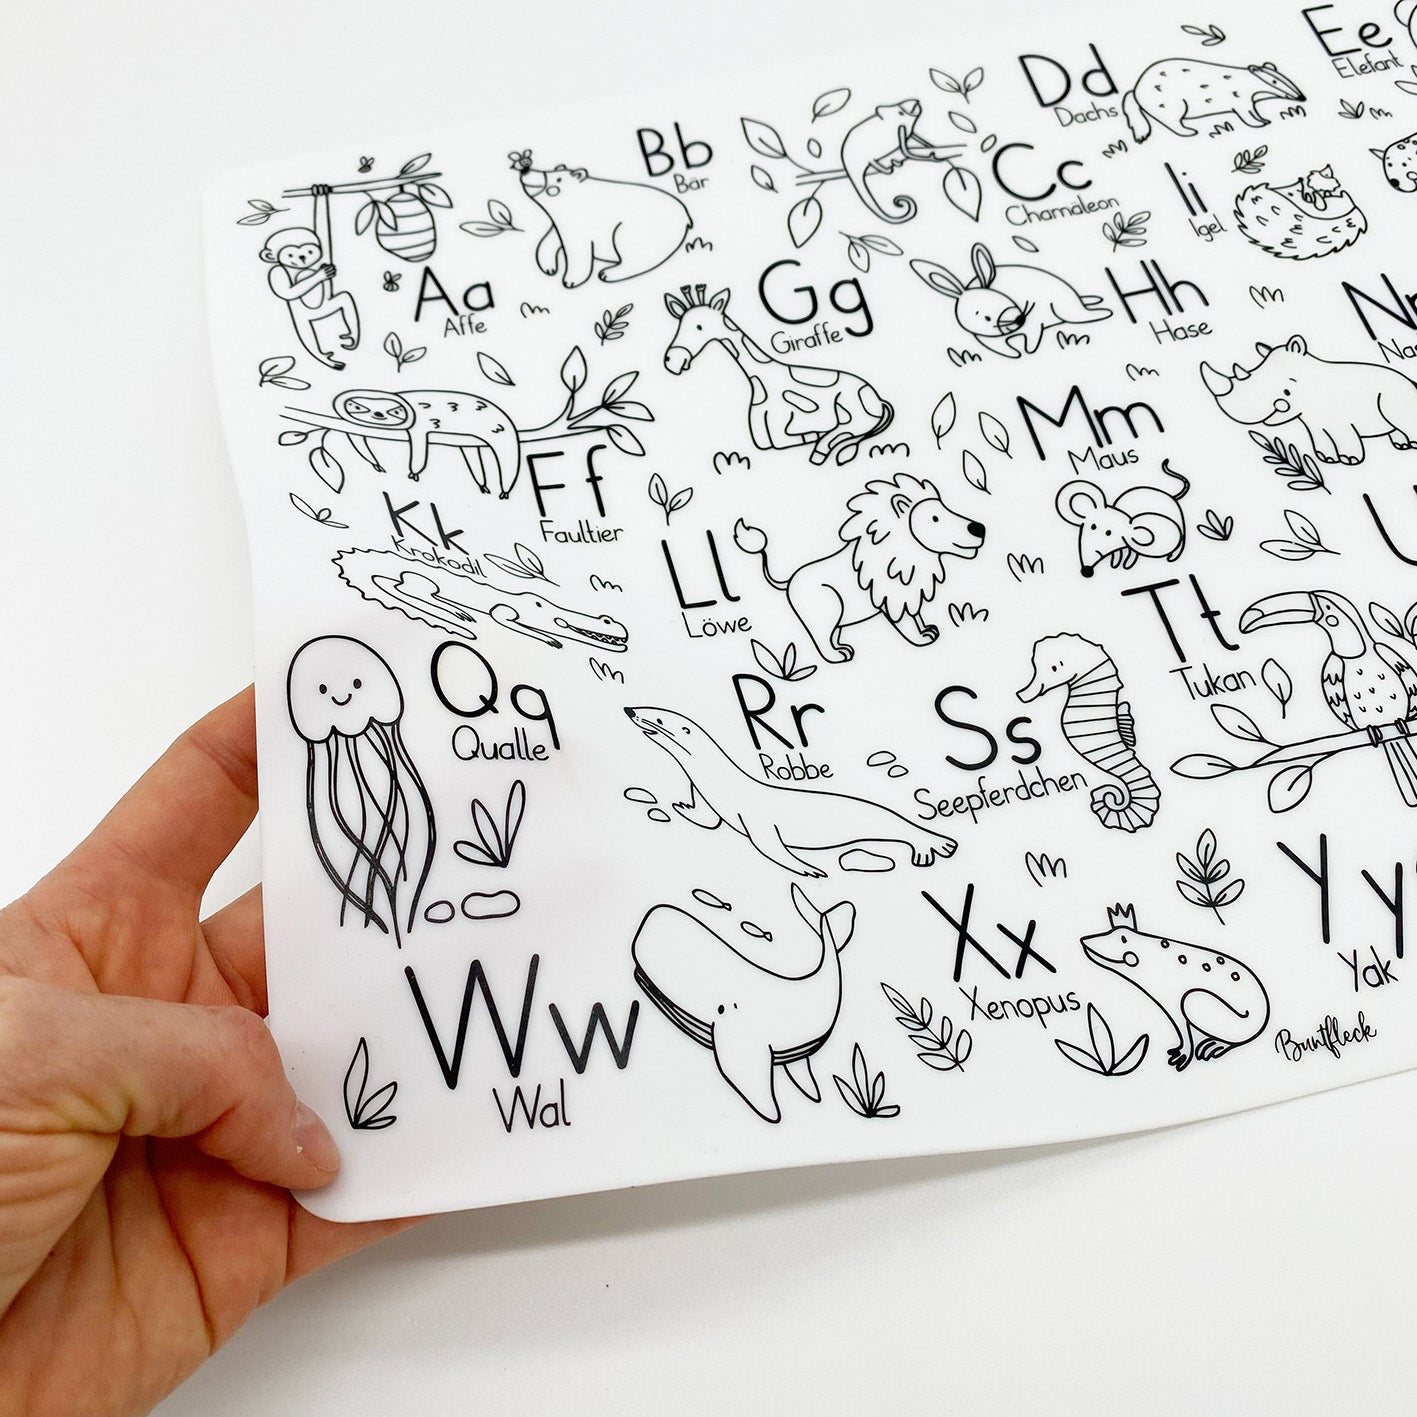 Aa
Affe
Bb
Bär
Cc
Chamäleon
Dd
Dachs
Ee
Elefant
Ff
Faultier
Gg
Giraffe
Hh
Hase
Ii
Igel
Kk
Krokodil
Ll
Löwe
Mm
Maus
Qq
Qualle
Rr
Robbe
Ss
Seepferdchen
Tt
Tukan
Ww
Wal
Xx
Xenopus
Yy
Yak
Buntfleck